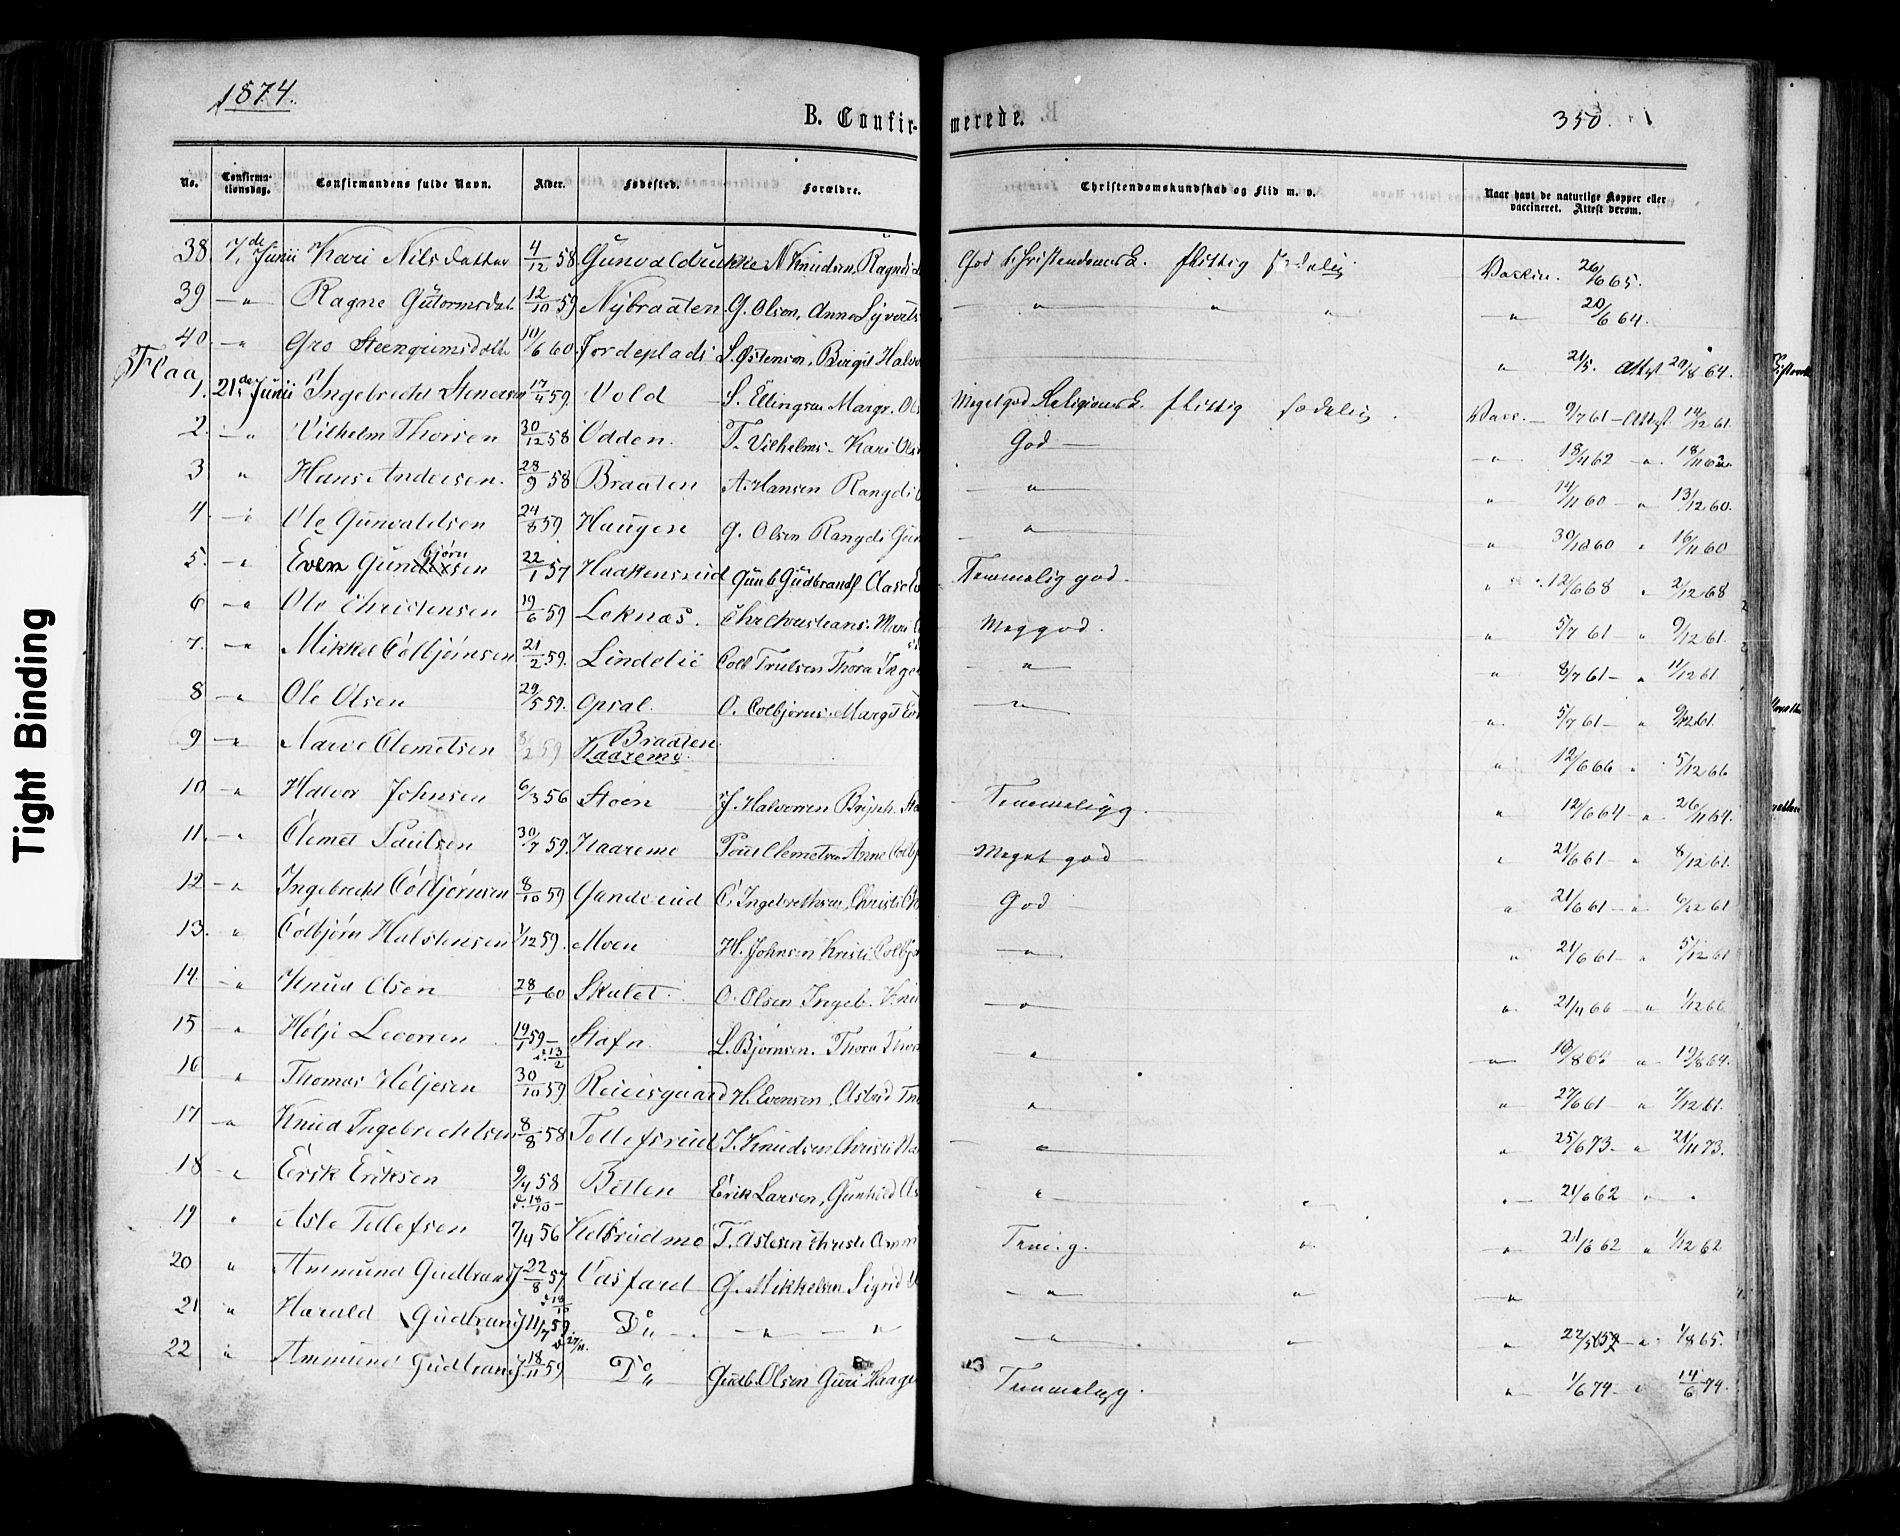 1874.
B. Confir- merede.
350.
No. Confirma-tionsdag. Confirmandens fulde Navn. Alder. Fødested. Forældre. Christendomskundskab og Flid m. v. Naar havt de naturlige Kopper eller vaccineret. Attest derom.
38. 7de Junii Kari Nilsdatter 4/12 58 Gunvaldbrukke N Knudsen, Ragndi God Christendomsk. flittig sædelig Vaccin. 26/6 65.
39 — " Ragne Gutormsdat 12/10 59 Nybraaten G. Olsen, Anne Syverts " " " " 20/6 64.
40. — " Gro Steengrimsdatte 10/6 60 Jordeplads S. Østensen, Birgit Halv " 21/5. Attest 20/8 64.
Flaa
1. 21de Junii Ingebrecht Stenersen 17/4 59. Vold S. Ellingsen Margr. Ols Megetgod Religionsk. flittig sædelig. Vacc. — 9/7 61 — Attest 14/12 61.
2. — " Vilhelm Thorsen 30/12 58 Odden. T. Vilhelms. Kari Ols God — — " — 18/4 62 — " 18/11 62
3 " Hans Andersen. 28/9 58 Braaten A. Hansen Rangdi " " 14/11 60 — " 13/12 60.
4. — " Ole Gunvaldsen 24/8 59 Haugen G. Olsen Rangdi Gun " " 30/10 60 " 16/11 60
5. — " Even Gunbjørnsen 22/1 57 Haakensrud Gunb Gudbrands Aase Temmelig god. " 12/6 68 " 2/12 68
6 — " Ole Christensen 19/6 59 Leknæs. Chr Christians. Mari Meg god. " 5/7 61 " 9/12 61.
7. — " Mikkel Colbjørnsen 21/2 59. Lindelie Colb Trulsen Thora Inge " " 8/7 61 — " 11/12 61
8 — " Ole Olsen 29/5 59. Opsal. O. Colbjørns. Margit " " 5/7 61 — " 9/12 61.
9 — " Narve Clemetsen 8/2 59 Braaten Haaremo. " 12/6 66 " 5/12 66
10. — " Halvor Johnsen 6/3 56 Støen J. Halvorsen Temmelig g. " 12/6 64 — " 26/11 64.
11. — " Clemet Paulsen 30/7 59. Haareme Paul Clemetsen Anne Colbj Meget god " 21/6 61 — " 8/12 61.
12 — " Ingebrecht Colbjørnsen 8/10 59 Gandrud C. Ingebrethsen, Christi God " 21/6 61 — " 6/12 61
13. " Colbjørn Halstensen 1/12 59. Moen H. Johnsen Kristi Colbj " " 21/6 61 — " 5/12 61
14. — " Knud Olsen 28/1 60 Skutet. O. Olsen Ingeb. Knu " " 21/4 66 — " 1/12 66
15 — " Helje Levorsen 19/1 59 — d. 13/2 Stafn. L. Bjørnsen. Thora Thor " " 10/8 64 " 19/8 64.
16 " Thomas Heljesen 30/10 59 H. Evensen, Astrid " " 27/6 61 " 7/12 61.
17 — " Knud Ingebrechtsen 8/8 58 Tollefsrud I. Knudsen Christi " " 25/6 73 — " 21/11 73.
18 — " Erik Eriksen 9/4 58 d. 18/10 — Bitten Erik Larsen, Gunhild " " " — 21/6 62 " "
19 " Asle Tollefsen 7/4 56 T. Aslesen Christi Tem. g. " " 21/6 62 " 1/12 62
20 " Ammund Gudbrands 22/8 57 d. 18/10 Vasfaret G. Mikkelsen Sigrid " " "
21 " Harald Gudbrands 11/7 59 d. 27/11. Do " — " — " " " " 22/5 — " 1/8 65.
22 " Ammund Gudbrands 18/11 59 Do " Gudb. Olsen Guri Haage Temmelig g. " 1/6 74 — " 14/6 74.
Tight Binding